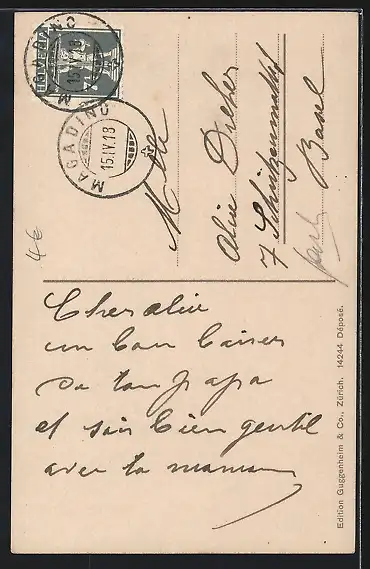 MAGADINO
15.IV.18
MAGADINO
15.IV.18
Mlle
Aline Dreher
7 Schützenmattstr
Basel
4€
Cher aline
un bon baiser
de ton papa
et sois bien gentil
avec ta maman
Edition Guggenheim & Co., Zürich. 14244 Déposé.